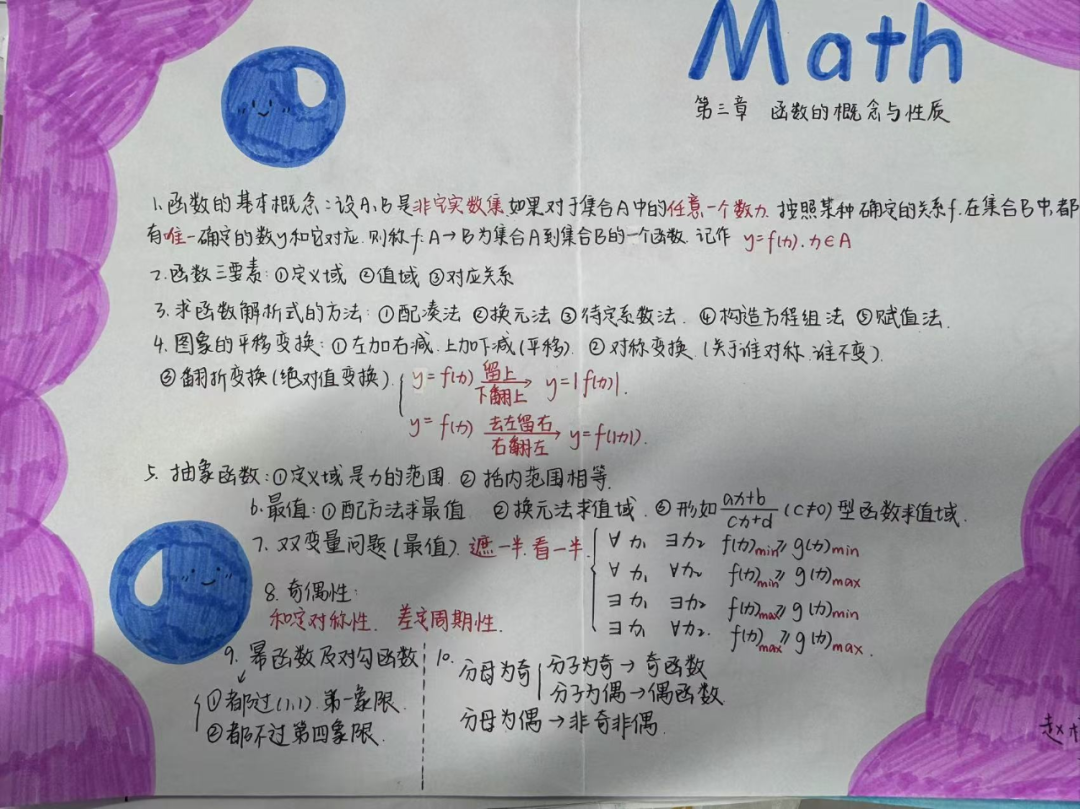 Math
第三章 函数的概念与性质
1.函数的基本概念:设A、B是非空实数集,如果对于集合A中的任意一个数x.按照某种确定的关系f.在集合B中,都
有唯一确定的数y和它对应.则称f:A→B为集合A到集合B的一个函数.记作 y=f(x).x∈A
2.函数三要素:①定义域 ②值域 ③对应关系
3.求函数解析式的方法:①配凑法 ②换元法 ③待定系数法. ④构造方程组法 ⑤赋值法.
4.图象的平移变换:①左加右减.上加下减(平移). ②对称变换.(关于谁对称.谁不变).
③翻折变换(绝对值变换). { y=f(x) 留上 下翻上 → y=|f(x)|.
y=f(x) 去左留右 右翻左 → y=f(|x|).
5.抽象函数:①定义域是x的范围. ②括内范围相等.
6.最值:①配方法求最值 ②换元法求值域. ③形如 ax+b/cx+d (c≠0)型函数求值域.
7.双变量问题(最值).遮一半.看一半. { ∀x₁ ∃x₂ f(x)min≥g(x)min
∀x₁ ∀x₂ f(x)min≥g(x)max
∃x₁ ∃x₂ f(x)max≥g(x)min
∃x₁ ∀x₂. f(x)max≥g(x)max.
8.奇偶性:
和定对称性. 差定周期性.
9.幂函数及对勾函数
①都过(1,1).第一象限.
②都不过第四象限.
10.分母为奇 { 分子为奇→奇函数
分子为偶→偶函数
分母为偶→非奇非偶.
赵